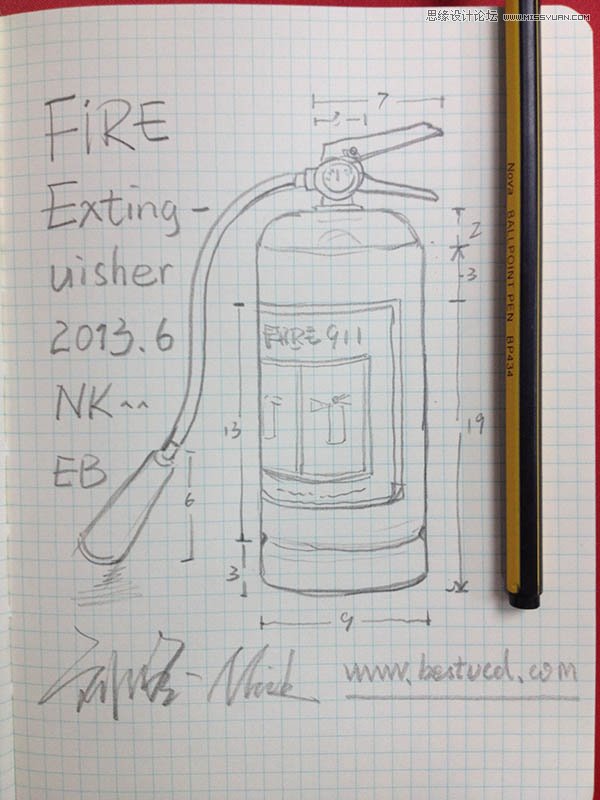 思缘设计论坛 WWW.MISSYUAN.COM
FiRE
Exting-
uisher
2013.6
NK~~
EB
7
3
2
3
FIRE 911
13
19
6
3
9
Nova BALLPOINT PEN BP434
Nick
www.bestucd.com